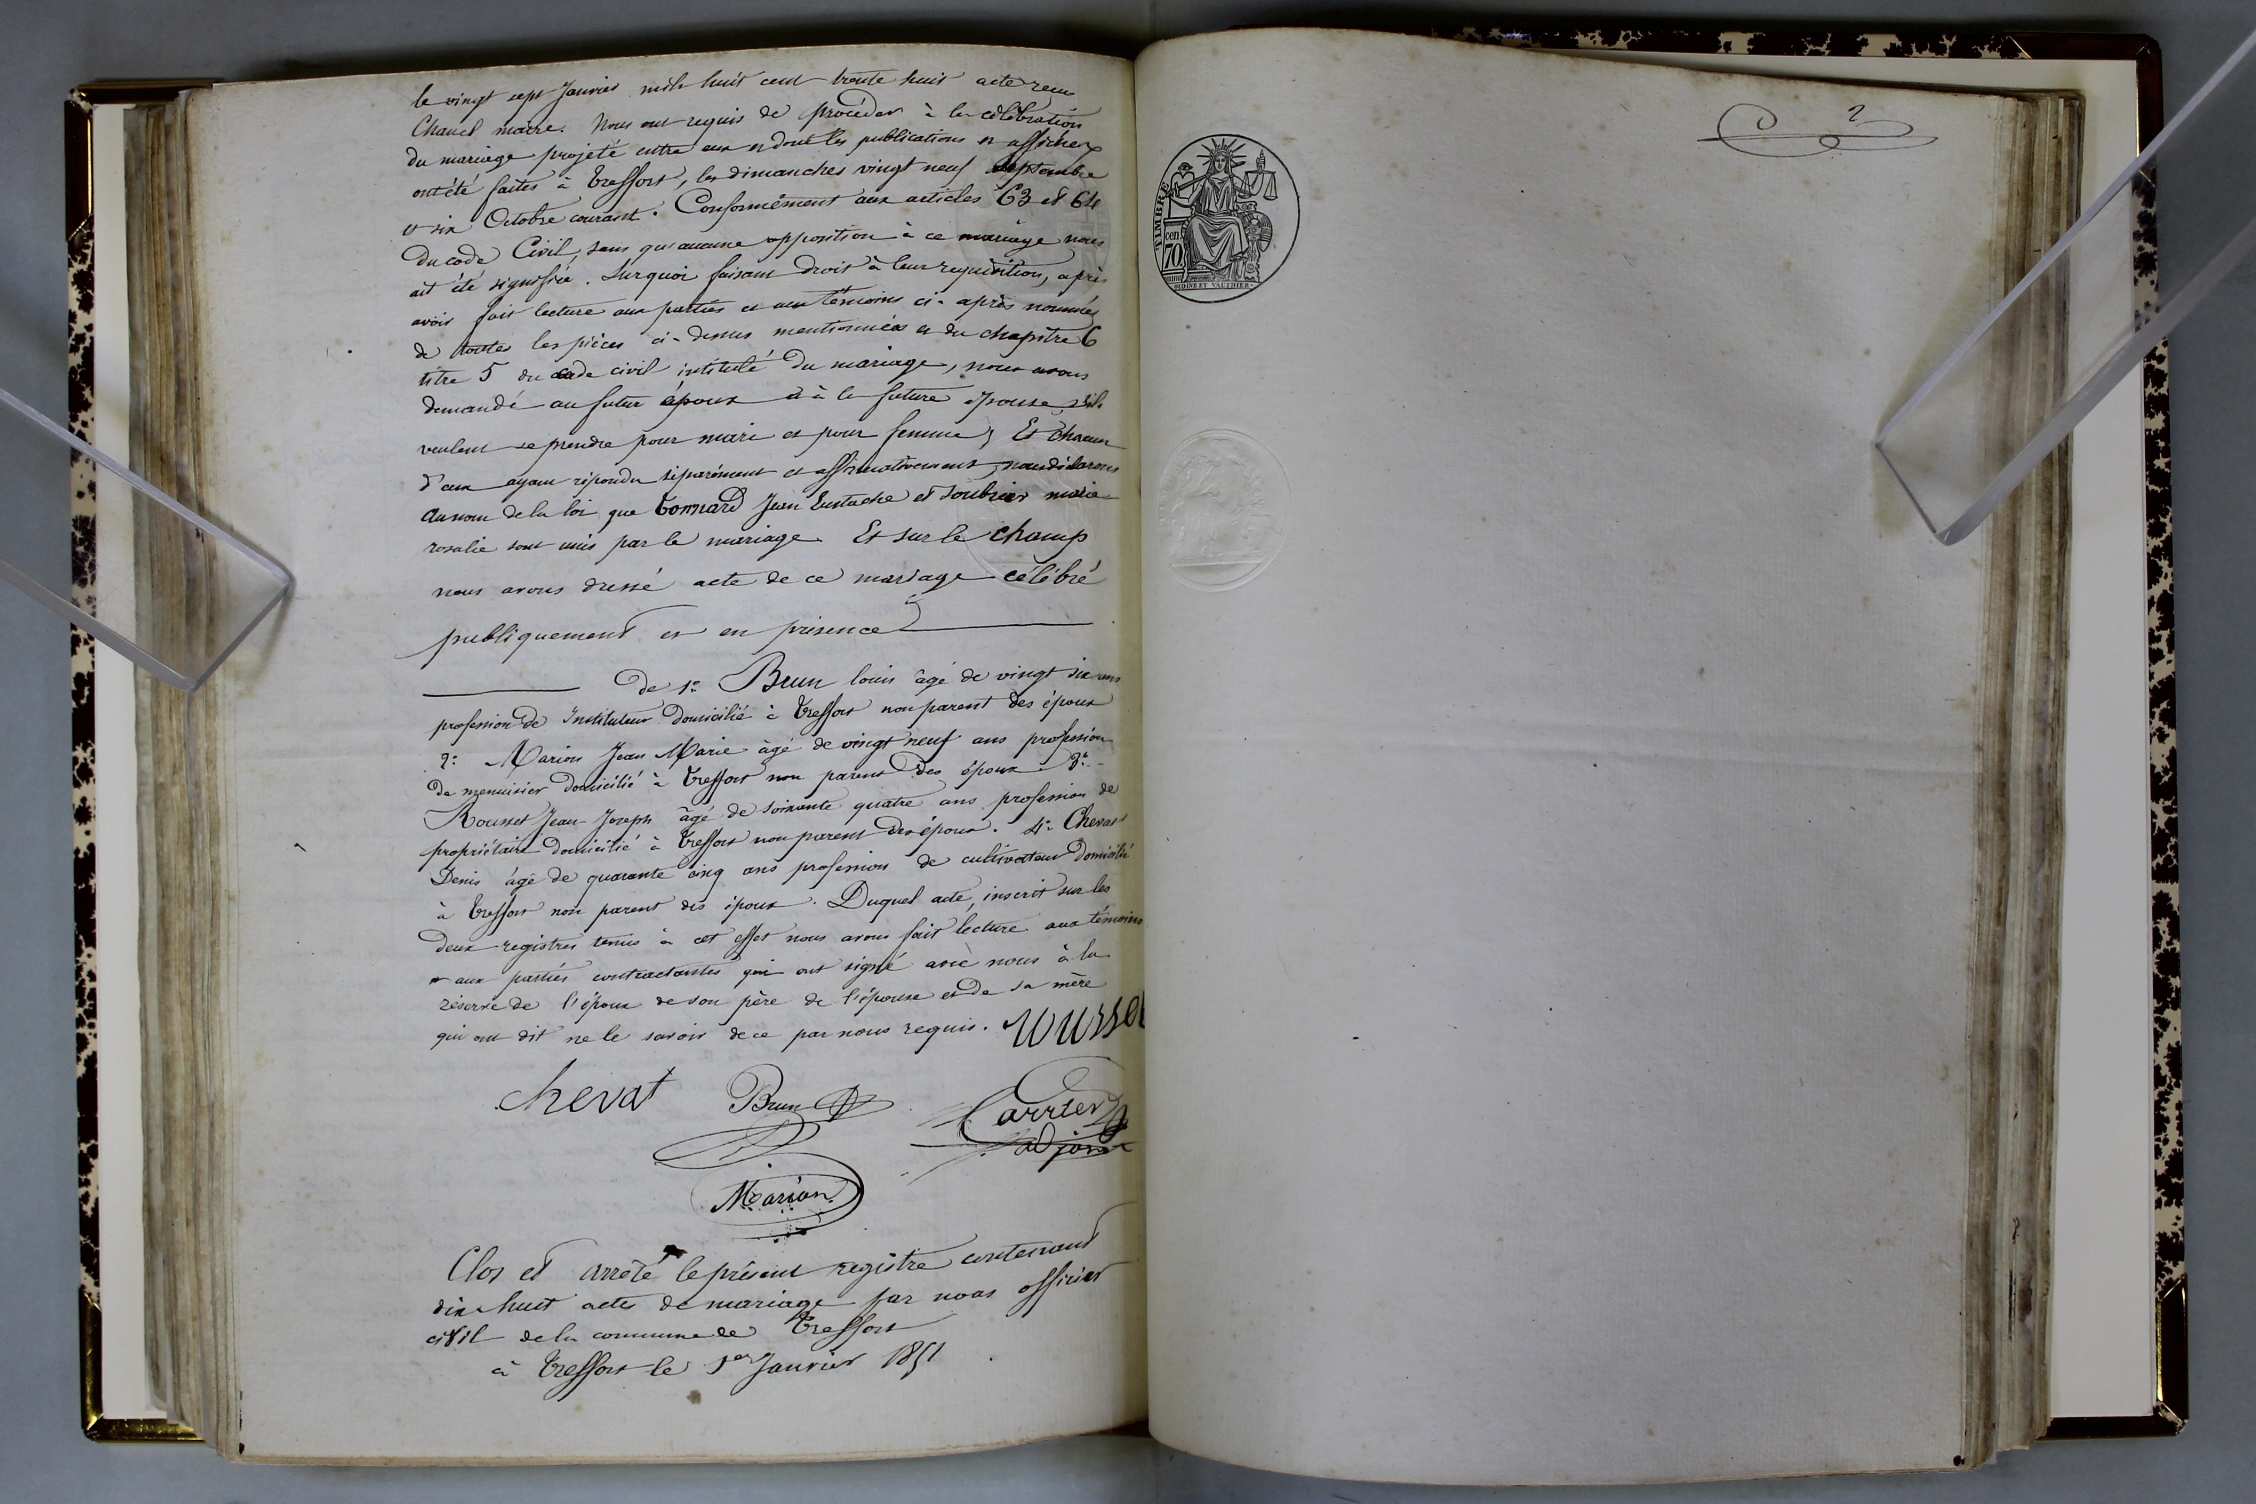 le vingt sept Janvier mil huit cent trente huit acte reçu
Chanel maire. Nous ont requis de procéder à la célébration
du mariage projeté entre eux et dont les publications et affiches
ont été faites à Treffort, les dimanches vingt neuf septembre
et six Octobre courant. Conformément aux articles 63 et 64
du code Civil, sans qu'aucune opposition à ce mariage nous
ait été signifiée. Sur quoi faisant droit à leur requisition, après
avoir fait lecture aux parties et aux témoins ci-après nommés
de toutes les pièces ci-dessus mentionnées et du chapitre 6
titre 5 du code civil intitulé du mariage, nous avons
demandé au futur époux et à la future épouse s'ils
veulent se prendre pour mari et pour femme, Et chacun
d'eux ayant répondu séparément et affirmativement, nous déclarons
au nom de la loi que Tonnard Jean Eustache et Soubrier marie
rosalie sont unis par le mariage. Et sur le champ
nous avons dressé acte de ce mariage célébré
publiquement et en présence
De 1° Brun louis âgé de vingt six ans
profession de Instituteur domicilié à Treffort non parent des époux
2° Marion Jean Marie âgé de vingt neuf ans profession
de menuisier domicilié à Treffort non parent des époux. 3°
Rousset Jean Joseph âgé de soixante quatre ans profession de
propriétaire domicilié à Treffort non parent des époux. 4° Chevat
Denis âgé de quarante cinq ans profession de cultivateur domicilié
à Treffort non parent des époux. Duquel acte, inscrit sur les
deux registres tenus à cet effet nous avons fait lecture aux témoins
et aux parties contractantes qui ont signé avec nous à la
réserve de l'époux de son père de l'épouse et de sa mère
qui ont dit ne le savoir de ce par nous requis.
chevat Brun Carrier
adjoint
Marion
Clos et arrêté le présent registre contenant
dix huit actes de mariage par nous officier
civil de la commune de Treffort
à Treffort le 1er Janvier 1851
2
TIMBRE
cen.
70.